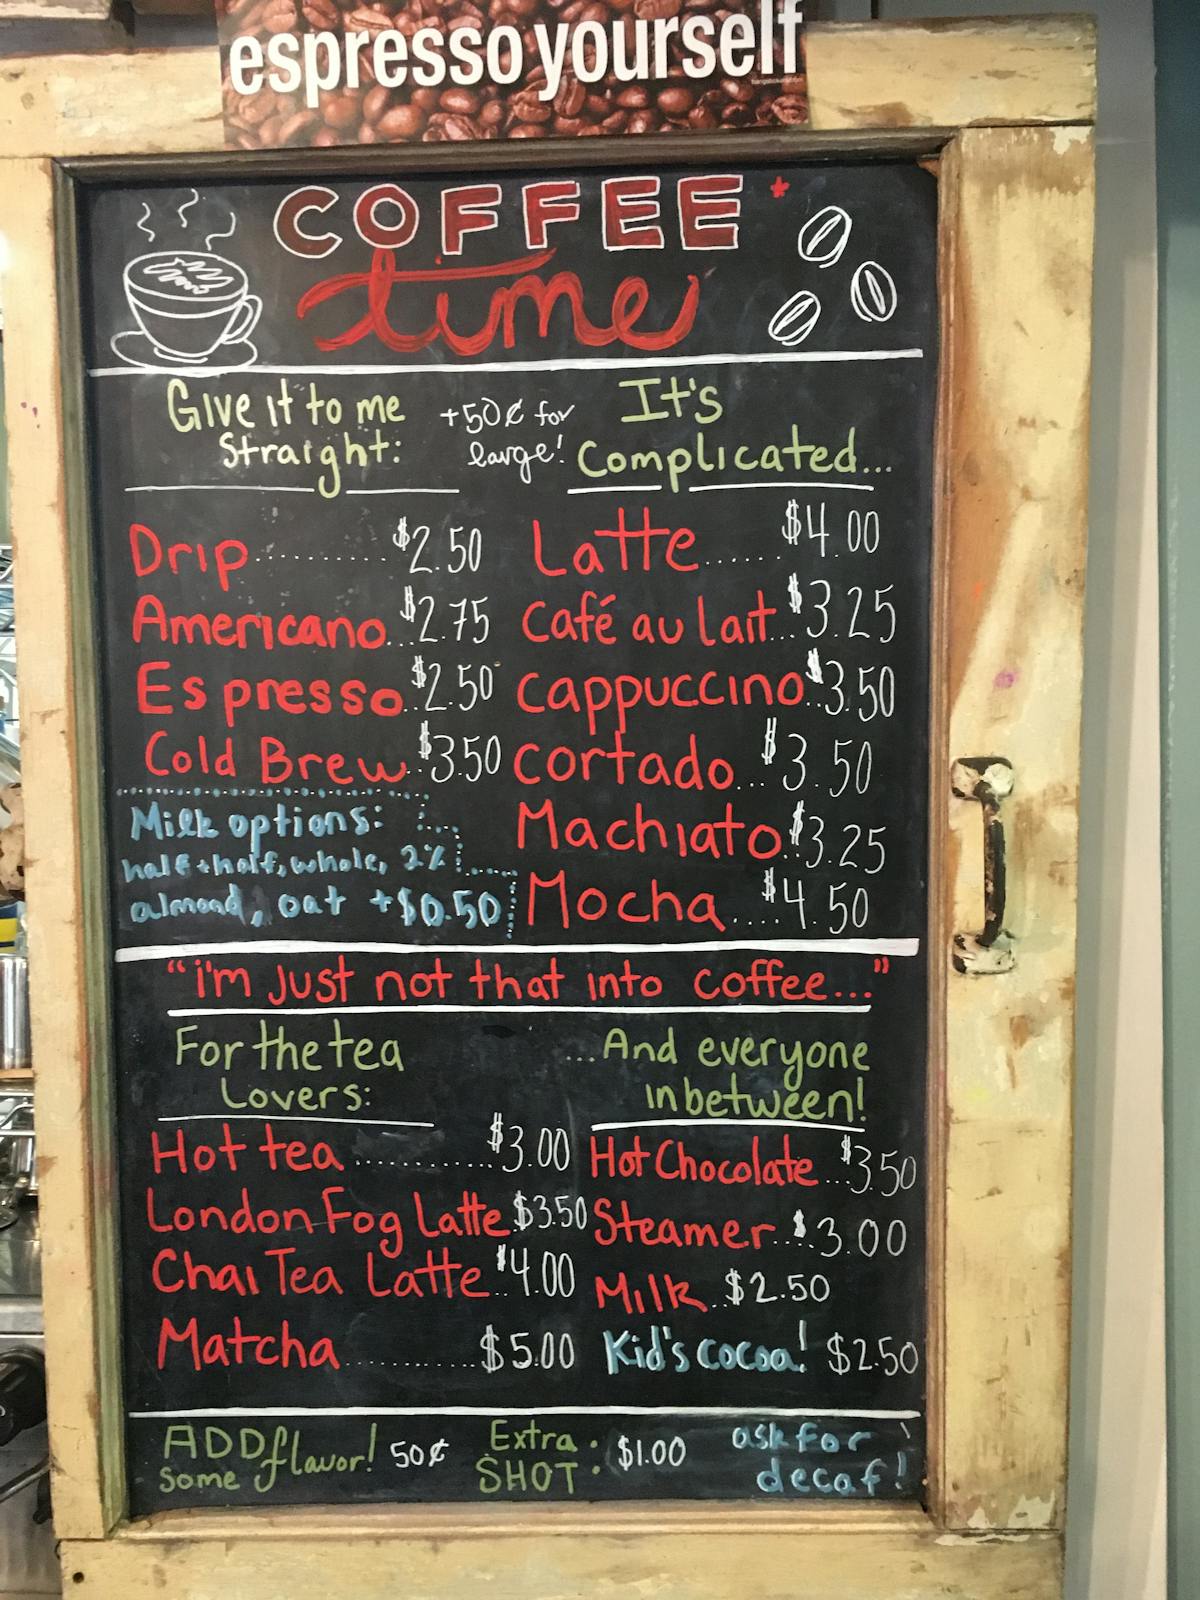 espresso yourself
COFFEE*
time
Give it to me
Straight:
+50¢ for
large!
It's
Complicated...
Drip.........$2.50
Americano...$2.75
Espresso..$2.50
Cold Brew..$3.50
Milk options:
half+half, whole, 2%
almond, oat +$0.50
Latte......$4.00
Café au lait...$3.25
Cappuccino..$3.50
Cortado...$3.50
Machiato..$3.25
Mocha....$4.50
"i'm just not that into coffee..."
For the tea
Lovers:
Hot tea............$3.00
London Fog Latte $3.50
Chai Tea Latte..$4.00
Matcha...........$5.00
...And everyone
in between!
Hot Chocolate...$3.50
Steamer...$3.00
Milk..$2.50
Kid's cocoa! $2.50
ADD
some flavor! 50¢
Extra
SHOT: $1.00
ask for
decaf!